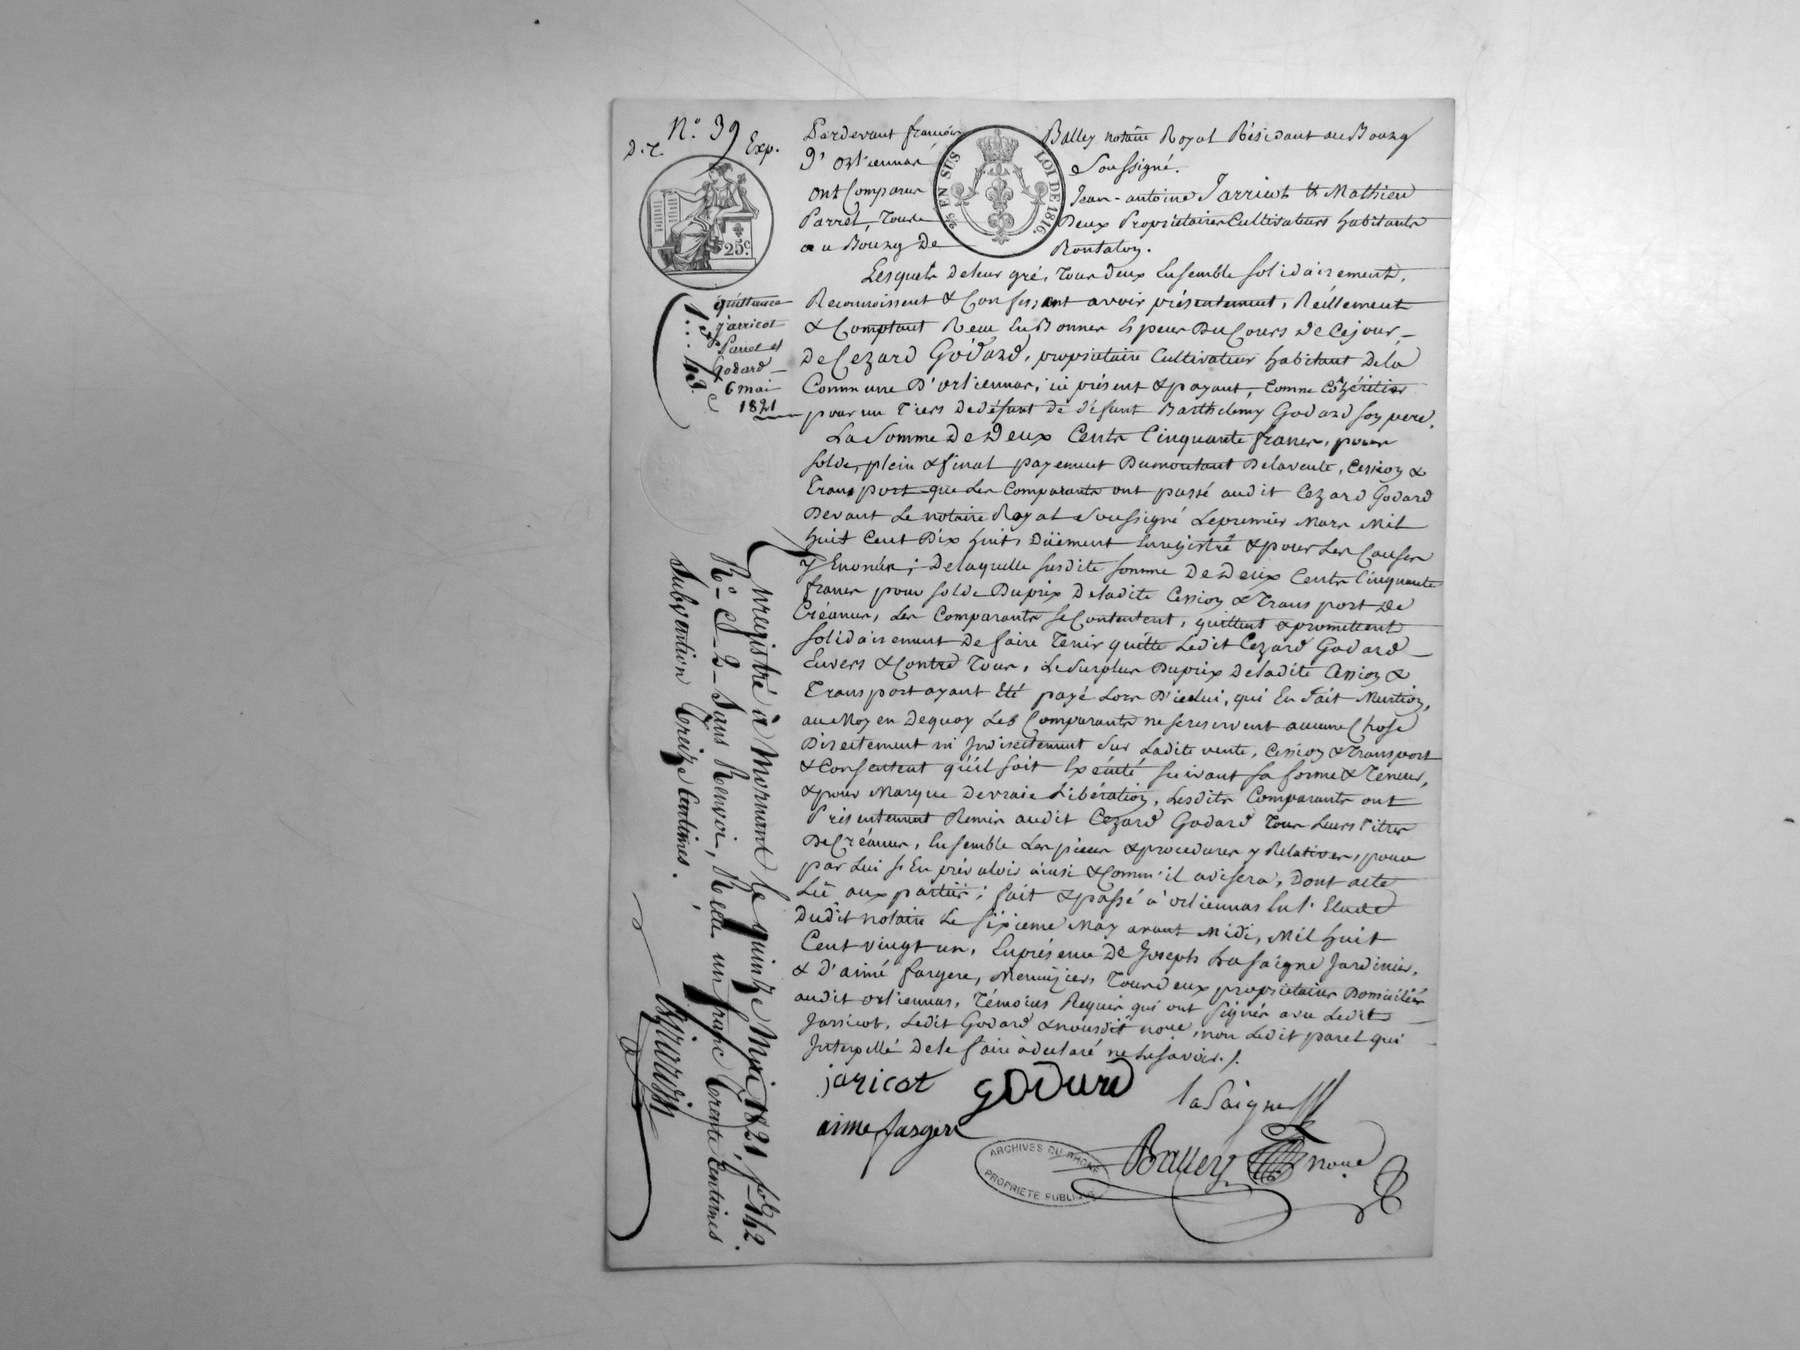 N.° 39
D. r. Exp.
25 c.
25 EN SUS
LOI DE 1816.
quittance
jarricot
Parret et
Godard
6 mai
1821
Pardevant françois Balley notaire Royal Résidant au Bourg
D'orliennas Soussigné.
ont Comparus Jean-antoine Jarricot & Mathieu
Parret, Tous Deux Propriétaires Cultivateurs habitants
au Bourg De Rontalon.
Lesquels de leur gré, Tous deux Ensemble solidairement,
Reconnoissent & Confessent avoir présentement, Réellement
& Comptant Reçu En Bonnes Espèces Du Cours de Cejour,
De Cezard Godard, propriétaire Cultivateur habitant De la
Commune D'orliennas, ici présent & payant, Comme Cohéritier
pour un Tiers Dedéfunt de défunt Barthelemy Godard son pere.
La Somme De Deux Cents Cinquante francs, pour
solde, plein & final payement Du montant Delavente, Cession &
Transport que Les Comparants ont passé audit Cezard Godard
Devant Le notaire Royal Soussigné Lepremier Mars Mil
huit Cent Dix huit, Düement Enregistré & pour Les Causes
y Enoncées ; De laquelle susdite somme De Deux Cents Cinquante
francs pour solde Duprix De ladite Cession & Transport De
Créances, Les Comparants se Contentent, quittent & promettent
solidairement De faire Tenir quitte Ledit Cezard Godard
Envers & Contre Tous, Le Surplus Duprix De ladite Cession &
Transport ayant Eté payé Lors D'icelui, qui En fait Mention,
au Moyen Dequoy Les Comparants ne se reservent aucune Chose
Directement ni Indirectement Sur Ladite vente, Cession & Transport
& Consentent qu'il soit Exécuté suivant sa forme & Teneur,
& pour Marque De vraie Libération, Lesdits Comparants ont
Présentement Remis audit Cezard Godard Tous Leurs Titres
De Créances, Ensemble Les pieces & procedures y Relatives, pour
par Lui s'En prévaloir ainsi & Comm'il avisera, Dont acte
Lu aux parties ; fait & passé à orliennas En l'Etude
Dudit notaire Le sixieme May avant Midi, Mil huit
Cent vingt un, En présence De Joseph LaSaigne Jardinier,
& D'aimé fargere, Menuizier, Tous Deux propriétaires Domiciliés
audit orliennas, Témoins Requis qui ont signés avec Ledit
Jarricot, Ledit Godard & nousdit nore, non Ledit paret qui
Interpellé De le faire a declaré ne le savoir./.
jaricot Godard laSaigne
aime fargere
Balley nore
ARCHIVES DU RHONE
PROPRIETE PUBLIQUE
Enregistré à Mornant le quinze Mai 1821 f° 142
R° C. 2 Sans Renvoi, Reçu un franc Trente Centimes
Subvention Treize Centimes.